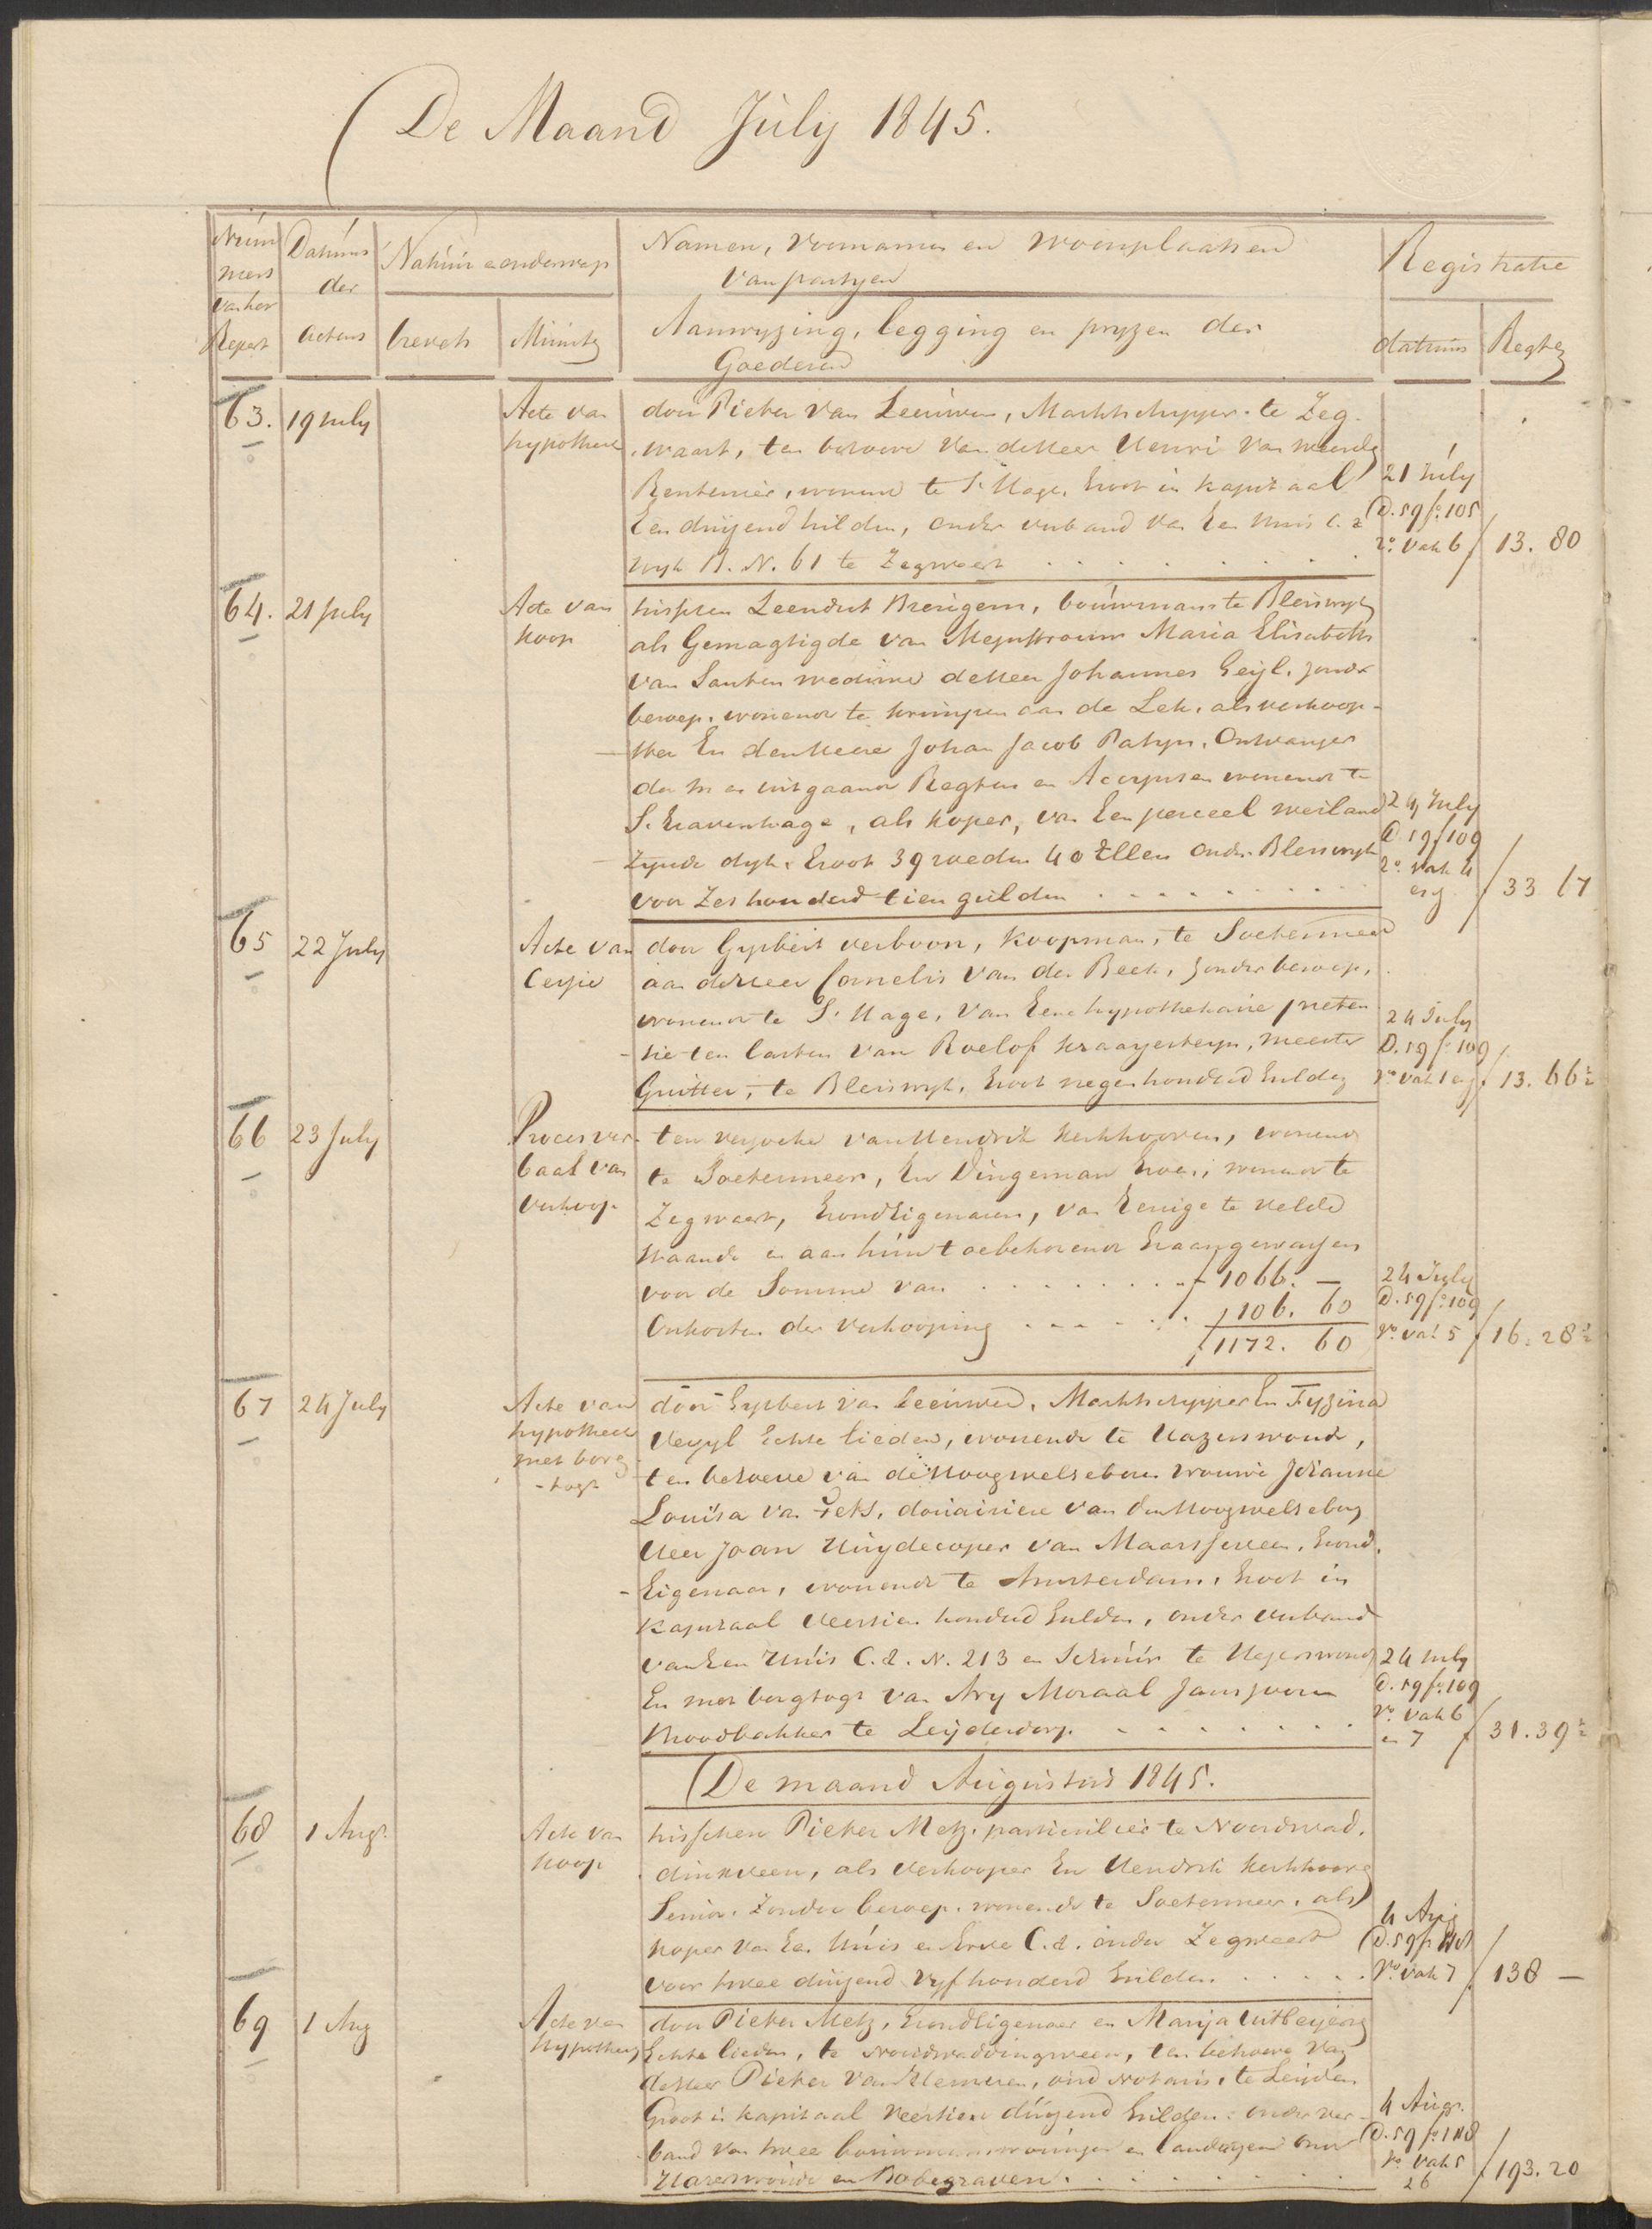 De Maand July 1845.
Num
mers
van het
Repert
Datums
der
Actens
Natuur en onderwerp
brevets
Minuts
Namen, Voornamen en Woonplaatsen
van partyen
Aanwyzing, legging en pryzen der
Goederen
Registratie
datums
Regten
63.
19 July
Acte van
hypotheek
door Pieter van Leeuwen, Marktschipper te Zeg-
waart, ten behoeve van de Heer Henri van
Rentenier, wonend te S. Hage, Groot in kapitaal
Een duizend Gulden, onder verband van Een Huis C.a
wyk B. N. 61 te Zegwaart
21 July
D. 59 fo. 105
ro. Vak 6
f 13. 80
64.
21 July
Acte van
koop
tusschen Leendert, bouwman te Bleiswyk
als Gemagtigde van Mejuffrouw Maria Elisabeth
van Santen weduwe de Heer Johannes Geyl, zonder
beroep, wonende te Krimpen aan de Lek, als verkoop-
ster En den Heere Johan Jacob Patyn, Ontvanger
der In en uitgaande Regten en Accynsen wonende te
S. Gravenhage, als koper, van Een perceel weiland
zynde dyk, Groot 39 roeden 40 Ellen onder Bleiswyk
voor Zeshonderd tien gulden
24 July
D. 59 f 109
ro. vak 4
en
f 33 67
65
22 July
Acte van
Cessie
door Gysbert Verboon, koopman, te Soetermeer
aan de Heer Cornelis van der Beek, zonder beroep,
wonende te S. Hage, van Eene hypothekaire preten
sie ten lasten van Roelof Kraayesteyn, meester
te Bleiswyk, Groot negenhonderd Gulden
24 July
D. 59 fo. 109
ro vak 1 en
f 13. 66½
66
23 July
Proces ver-
baal van
verkoop
ten verzoeke van Hendrik Kerkhoven, wonend
te Soetermeer, En Dingeman, wonende te
Zegwaart, Grond Eigenaren, van Eenige te velde
staande en aan hun toebehorende Graangewassen
voor de Somme van f 1066. —
Onkosten der verkooping f 106. 60
f 1172. 60
24 July
D. 59 fo. 109
ro. vak 5
f 16. 28½
67
24 July
Acte van
hypotheek
met borg
-togt
door Gysbert van Leeuwen, Marktschipper En Fyzina
Echte lieden, wonende te Hazerswoude,
ten behoeve van de Hoogwelgeboren Vrouwe Johanna
Louisa van, douairiere van den Hoogwelgeboren
Heer Joan Huydecoper van Maarsseveen, Grond.
Eigenaar, wonende te Amsterdam, Groot in
Kapitaal Veertien honderd Gulden, onder verband
van Een Huis C.a. N. 213 en Schuur te Hazerswoude
En met borgtogt van Ary Moraal Janszoon
Broodbakker te Leyderdorp.
24 July
D. 59 fo. 109
vo. Vak 6
en 7
f 31. 39½
De maand Augustus 1845.
68
1 Augs.
Acte van
koop
tusschen Pieter Metz, particulier te Noordwad.
dinxveen, als Verkooper En Hendrik Kerkhoven
Senior, Zonder beroep, wonende te Soetermeer, als
koper van Een Huis en Erve C.a. onder Zegwaart
voor twee duizend Vyfhonderd Gulden
4 Aug
D. 59 fo 118
vo. vak 7
f 138 —
69
1 Aug
Acte van
Hypotheek
door Pieter Metz, Grondeigenaar en Marija
Echte lieden, te Noordwaddingsveen, ten behoeve van
de Heer Pieter van, oud Notaris, te Leyden
Groot in kapitaal Veertien duizend Gulden, onder ver-
band van twee bouwmanswoningen en landeryen onder
Hazerswoude en Bodegraven.
4 Augs.
D. 59 fo. 118
vo. Vak 5
26
f 193. 20